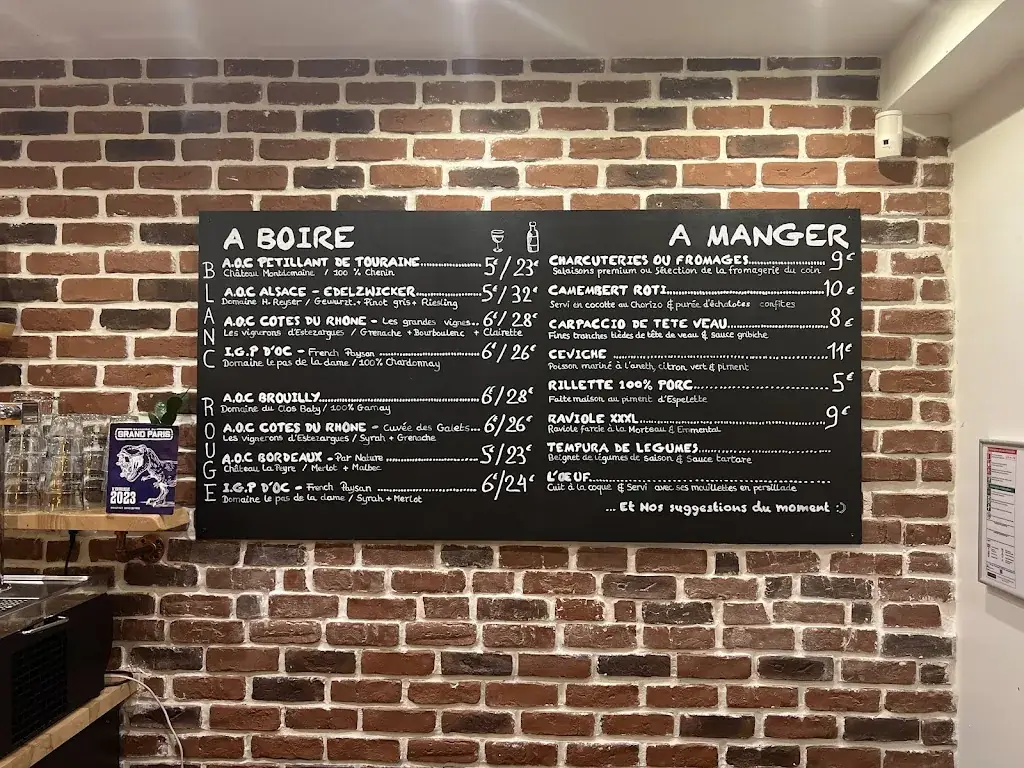 A BOIRE
BLANC
A.O.C PETILLANT DE TOURAINE 5€/23€
/ 100 % Chenin
A.O.C ALSACE - EDELZWICKER 5€/32€
Domaine H. Reyser / Gewurzt.+ Pinot gris+ Riesling
A.O.C COTES DU RHONE - Les grandes vignes.. 6€/28€
Les vignerons d'Estezargues / Grenache + Bourboulenc + Clairette
I.G.P D'OC - French Paysan 6€/26€
Domaine le pas de la dame / 100% Chardonnay
ROUGE
A.O.C BROUILLY 6€/28€
Domaine du Clos Baty / 100% Gamay
A.O.C COTES DU RHONE - Cuvée des Galets... 6€/26€
Les vignerons d'Estezargues / Syrah + Grenache
A.O.C BORDEAUX - Par Nature 5€/23€
Château La Peyre / Merlot + Malbec
I.G.P D'OC - French Paysan 6€/24€
Domaine le pas de la dame / Syrah + Merlot
A MANGER
CHARCUTERIES OU FROMAGES 9€
Salaisons premium ou Sélection de la fromagerie du coin
CAMEMBERT ROTI 10€
Servi en cocotte au Chorizo & purée d'échalotes confites
CARPACCIO DE TETE VEAU 8€
Fines tranches tièdes de tête de veau & sauce gribiche
CEVICHE 11€
Poisson mariné à l'aneth, citron vert & piment
RILLETTE 100% PORC 5€
Faite maison au piment d'Espelette
RAVIOLE XXXL 9€
Raviole farcie à la Morteau & Emmental
TEMPURA DE LEGUMES
Beignet de légumes de saison & Sauce tartare
L'ŒUF
Cuit à la coque & Servi avec ses mouillettes en persillade
... Et Nos suggestions du moment :)
GRAND PARIS
2023